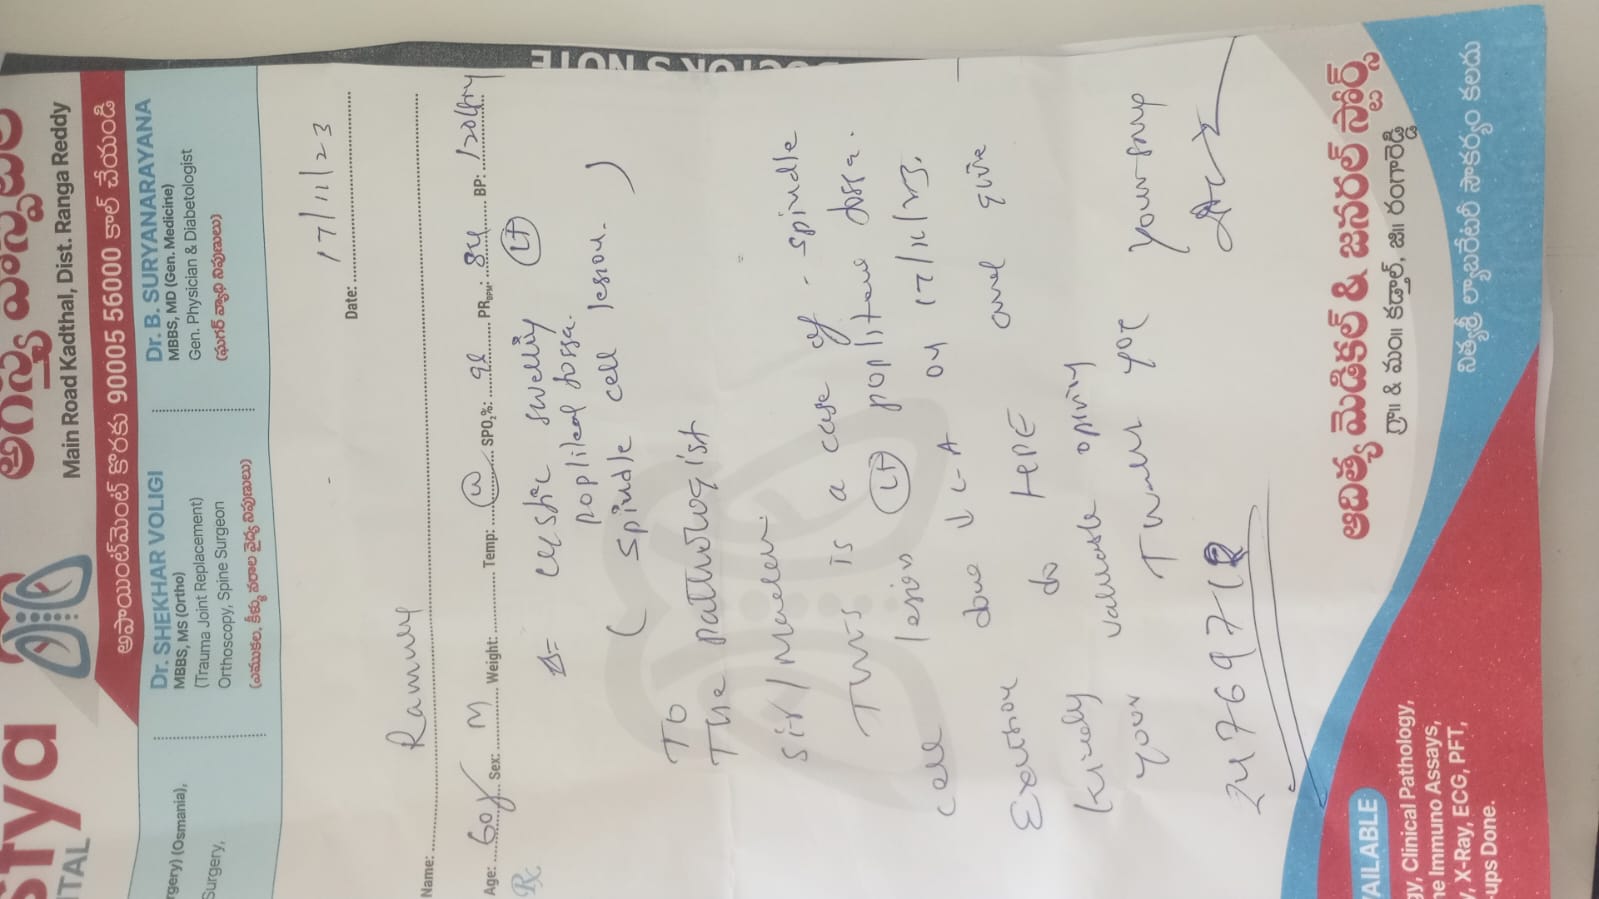 stya
ITAL
అగస్త్య హాస్పిటల్
Main Road Kadthal, Dist. Ranga Reddy
అపాయింట్‌మెంట్ కొరకు 90005 56000 కాల్ చేయండి
rgery) (Osmania),
Surgery,
Dr. SHEKHAR VOLIGI
MBBS, MS (Ortho)
(Trauma Joint Replacement)
Orthoscopy, Spine Surgeon
(ఎముకల, కీళ్ళు, నరాల వైద్య నిపుణులు)
Dr. B. SURYANARAYANA
MBBS, MD (Gen. Medicine)
Gen. Physician & Diabetologist
(షుగర్ వ్యాధి నిపుణులు)
Date: 17/11/23
Name: Ramulu
Age: 60y Sex: M Weight: Temp: N SPO₂%: 98 PR BPM: 84 BP: 120/
Rx
cystic swelling (LT)
popliteal fossa.
( spindle cell lesion. )
To
The pathologist
Sir/Madam
This is a case of - spindle
cell lesion (LT) popliteal fossa.
done ↓ L-A on 17/11/23.
Excision do HPE and give
Kindly valuable opinion
your Thank you
yours
24769712
ఆదిత్య మెడికల్ & జనరల్ స్టోర్స్
గ్రా॥ & మం॥ కడ్తాల్, జి॥ రంగారెడ్డి
నిత్యశ్రీ ల్యాబొరేటరీ సౌకర్యం కలదు
VAILABLE
gy, Clinical Pathology,
ne Immuno Assays,
y, X-Ray, ECG, PFT,
-ups Done.
DOCTOR'S NOTE